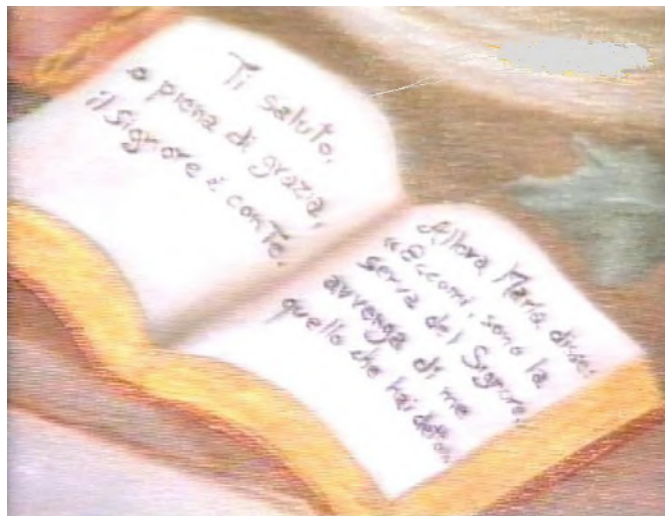 Ti saluto,
o piena di grazia,
il Signore è con Te.
Allora Maria disse:
"Eccomi, sono la
serva del Signore:
avvenga di me
quello che hai detto".